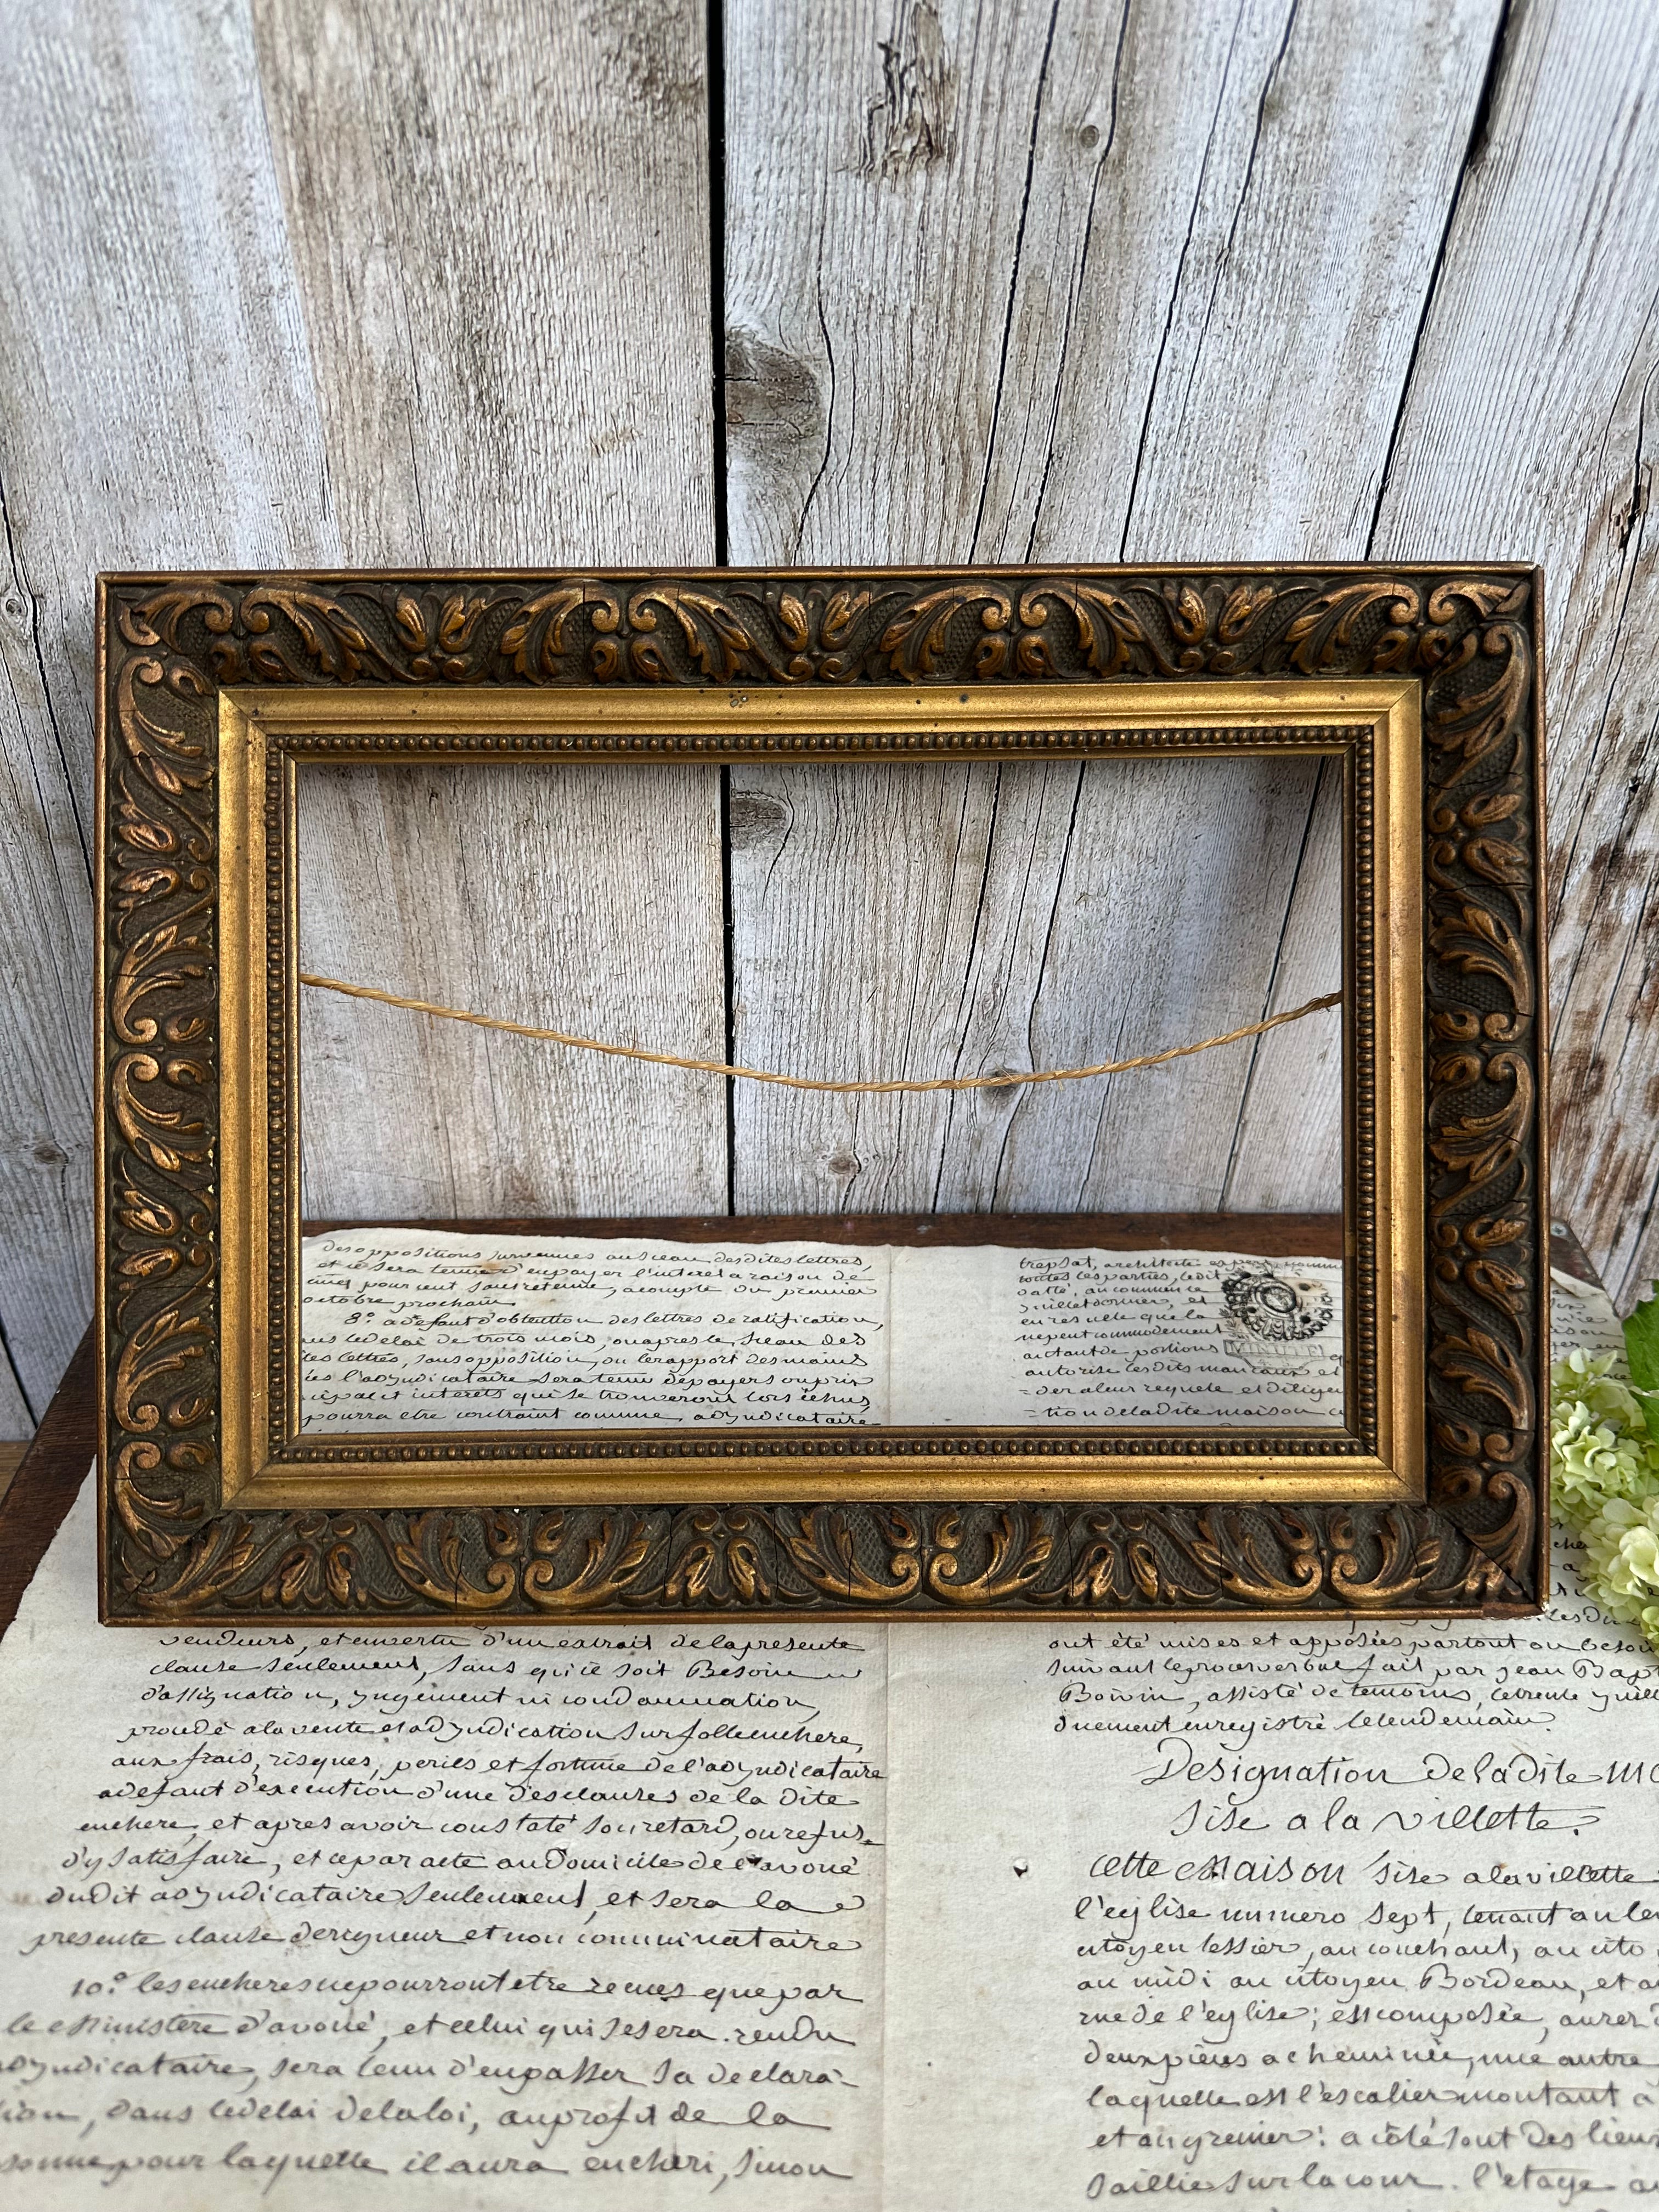 des oppositions survenues au sceau desdites lettres,
et il sera tenu d'en payer l'interet a raison de
cinq pour cent sans retenue, a compte du premier
octobre prochain
8.° a defaut d'obtention des lettres de ratification,
le delai de trois mois, ou apres le sceau des
lettres, sans opposition, ou le rapport des mains
l'adjudicataire sera tenu de payer son prix
et interets qui se trouveront lors echus,
pourra etre contraint comme adjudicataire
vendeurs, et en vertu d'un extrait de la presente
clause seulement, sans qu'il soit Besoin
d'assignation, jugement ni condamnation,
procédé a la vente et adjudication sur folle enchere,
aux frais, risques, perils et fortune de l'adjudicataire
a defaut d'execution d'une des clauses de la dite
enchere, et apres avoir constaté son retard, ou refus
d'y satisfaire, et ce par acte au Domicile de l'avoué
dudit adjudicataire seulement, et sera la
presente clause de rigueur et non comminatoire
10.° les encheres ne pourront etre recues que par
le Ministère d'avoué, et celui qui se sera rendu
adjudicataire, sera tenu d'en passer sa declara-
tion, dans le delai de la loi, au profit de la
sonne pour laquelle il aura encheri, sinon
trepsat, architecte
toutes les parties, ledit
date, au commence
juillet dernier, et
en resulte que la
ne peut commodement
autant de portions
MINUTE
autorise lesdits
=der a leur requete et diligen
=tion de la dite maison
ont été mises et apposées partout ou besoin
suivant le proces verbal fait par jean Bapt
Boivin, assisté de temoins, le trente juill
duement enregistré le lendemain.
Designation de la dite
Sise a la villette.
Cette Maison Sise a la villette
l'eglise numero sept, tenant au le
citoyen tessier, au couchant, au cito
au midi au citoyen Bordeau, et a
rue de l'eglise; est composée, au rez d
deux pieces a cheminée, une autre
laquelle est l'escalier montant a
et au grenier: a côté sont des lieux
saillie sur la cour. l'etage au